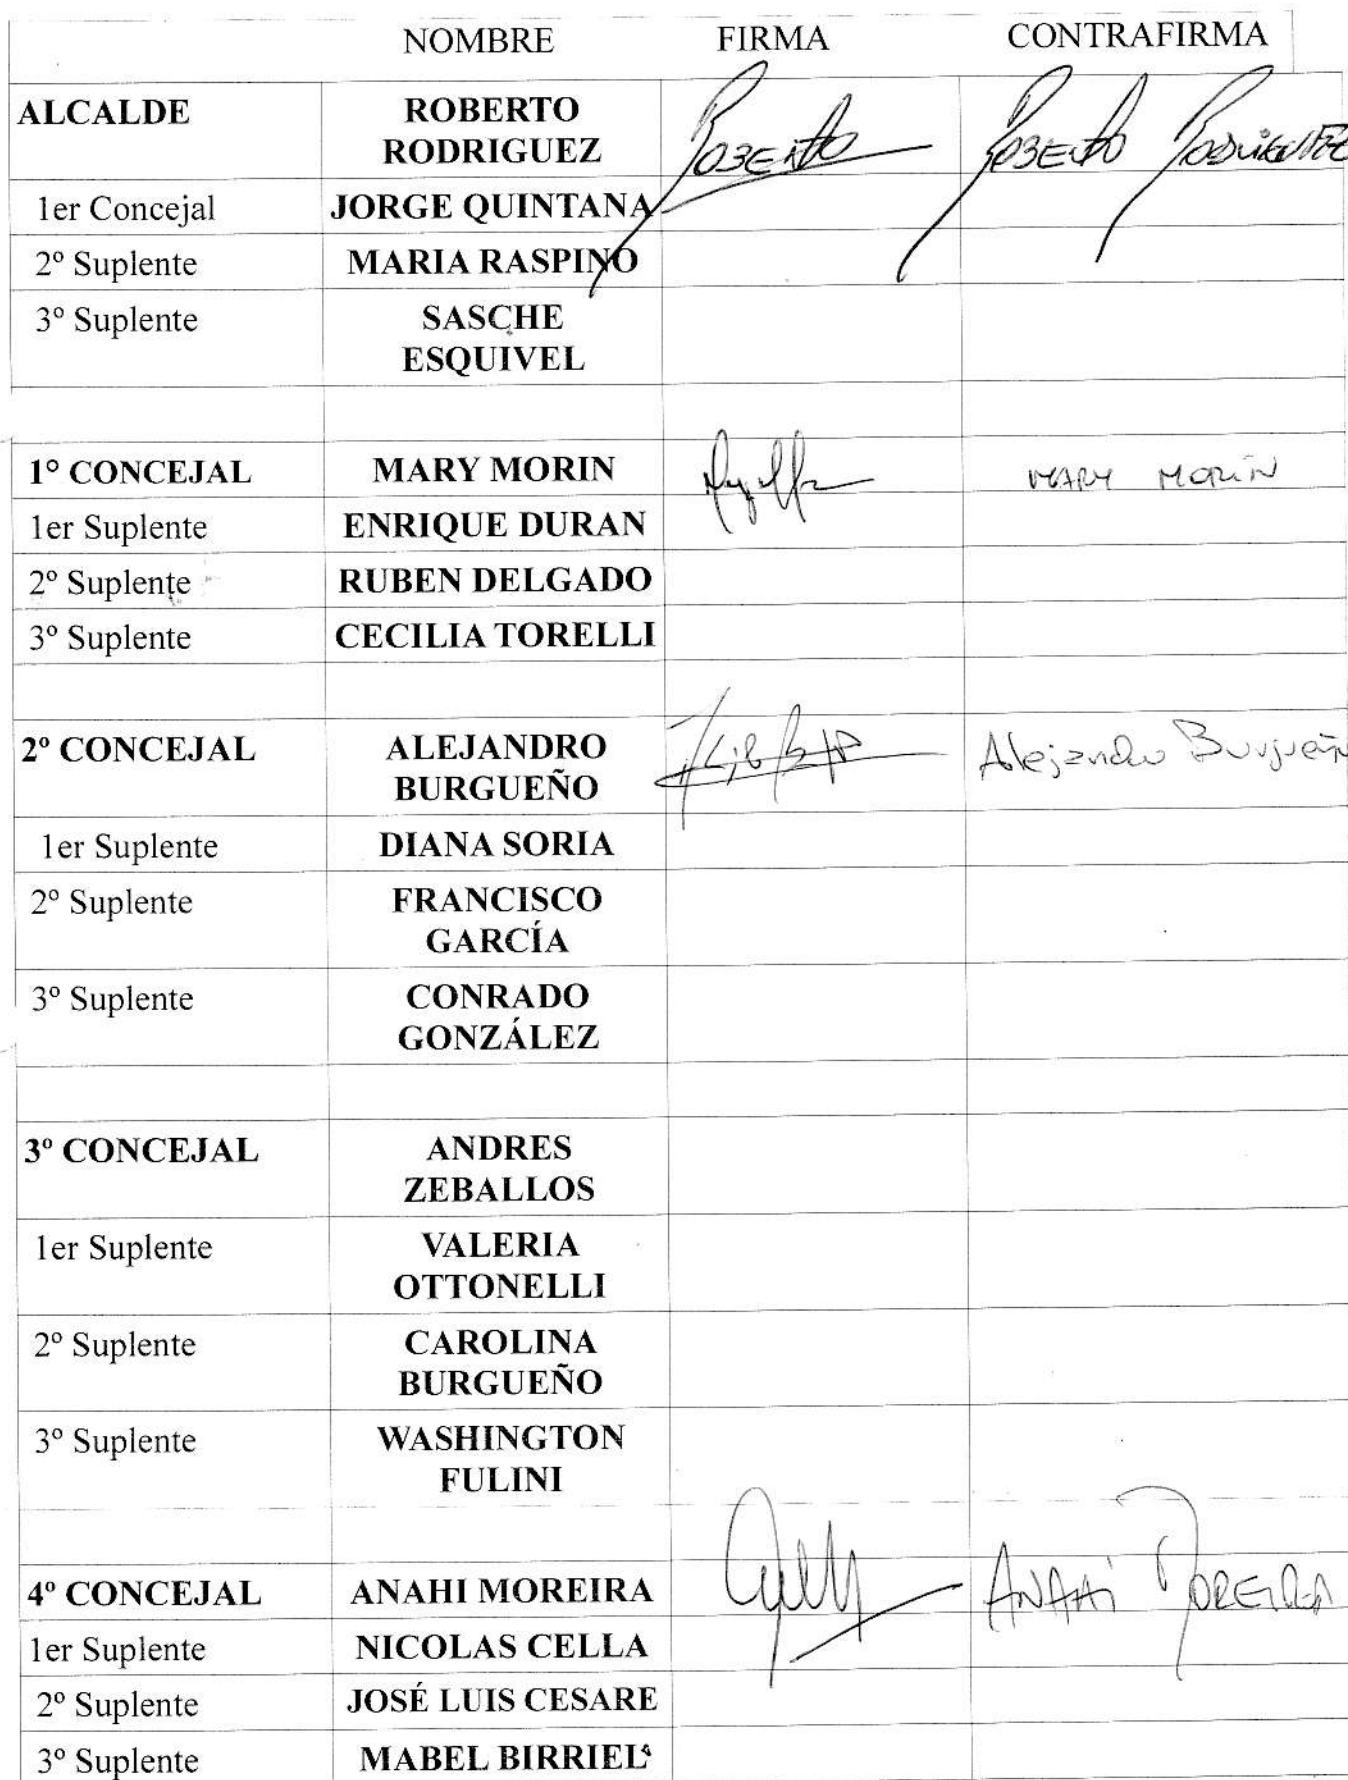 NOMBRE FIRMA CONTRAFIRMA
ALCALDE ROBERTO RODRIGUEZ Roberto Roberto Rodriguez
1er Concejal JORGE QUINTANA
2º Suplente MARIA RASPINO
3º Suplente SASCHE ESQUIVEL
1º CONCEJAL MARY MORIN MARY MORIN
1er Suplente ENRIQUE DURAN
2º Suplente RUBEN DELGADO
3º Suplente CECILIA TORELLI
2º CONCEJAL ALEJANDRO BURGUEÑO Alejandro Burgueñ
1er Suplente DIANA SORIA
2º Suplente FRANCISCO GARCÍA
3º Suplente CONRADO GONZÁLEZ
3º CONCEJAL ANDRES ZEBALLOS
1er Suplente VALERIA OTTONELLI
2º Suplente CAROLINA BURGUEÑO
3º Suplente WASHINGTON FULINI
4º CONCEJAL ANAHI MOREIRA ANAHI MOREIRA
1er Suplente NICOLAS CELLA
2º Suplente JOSÉ LUIS CESARE
3º Suplente MABEL BIRRIEL